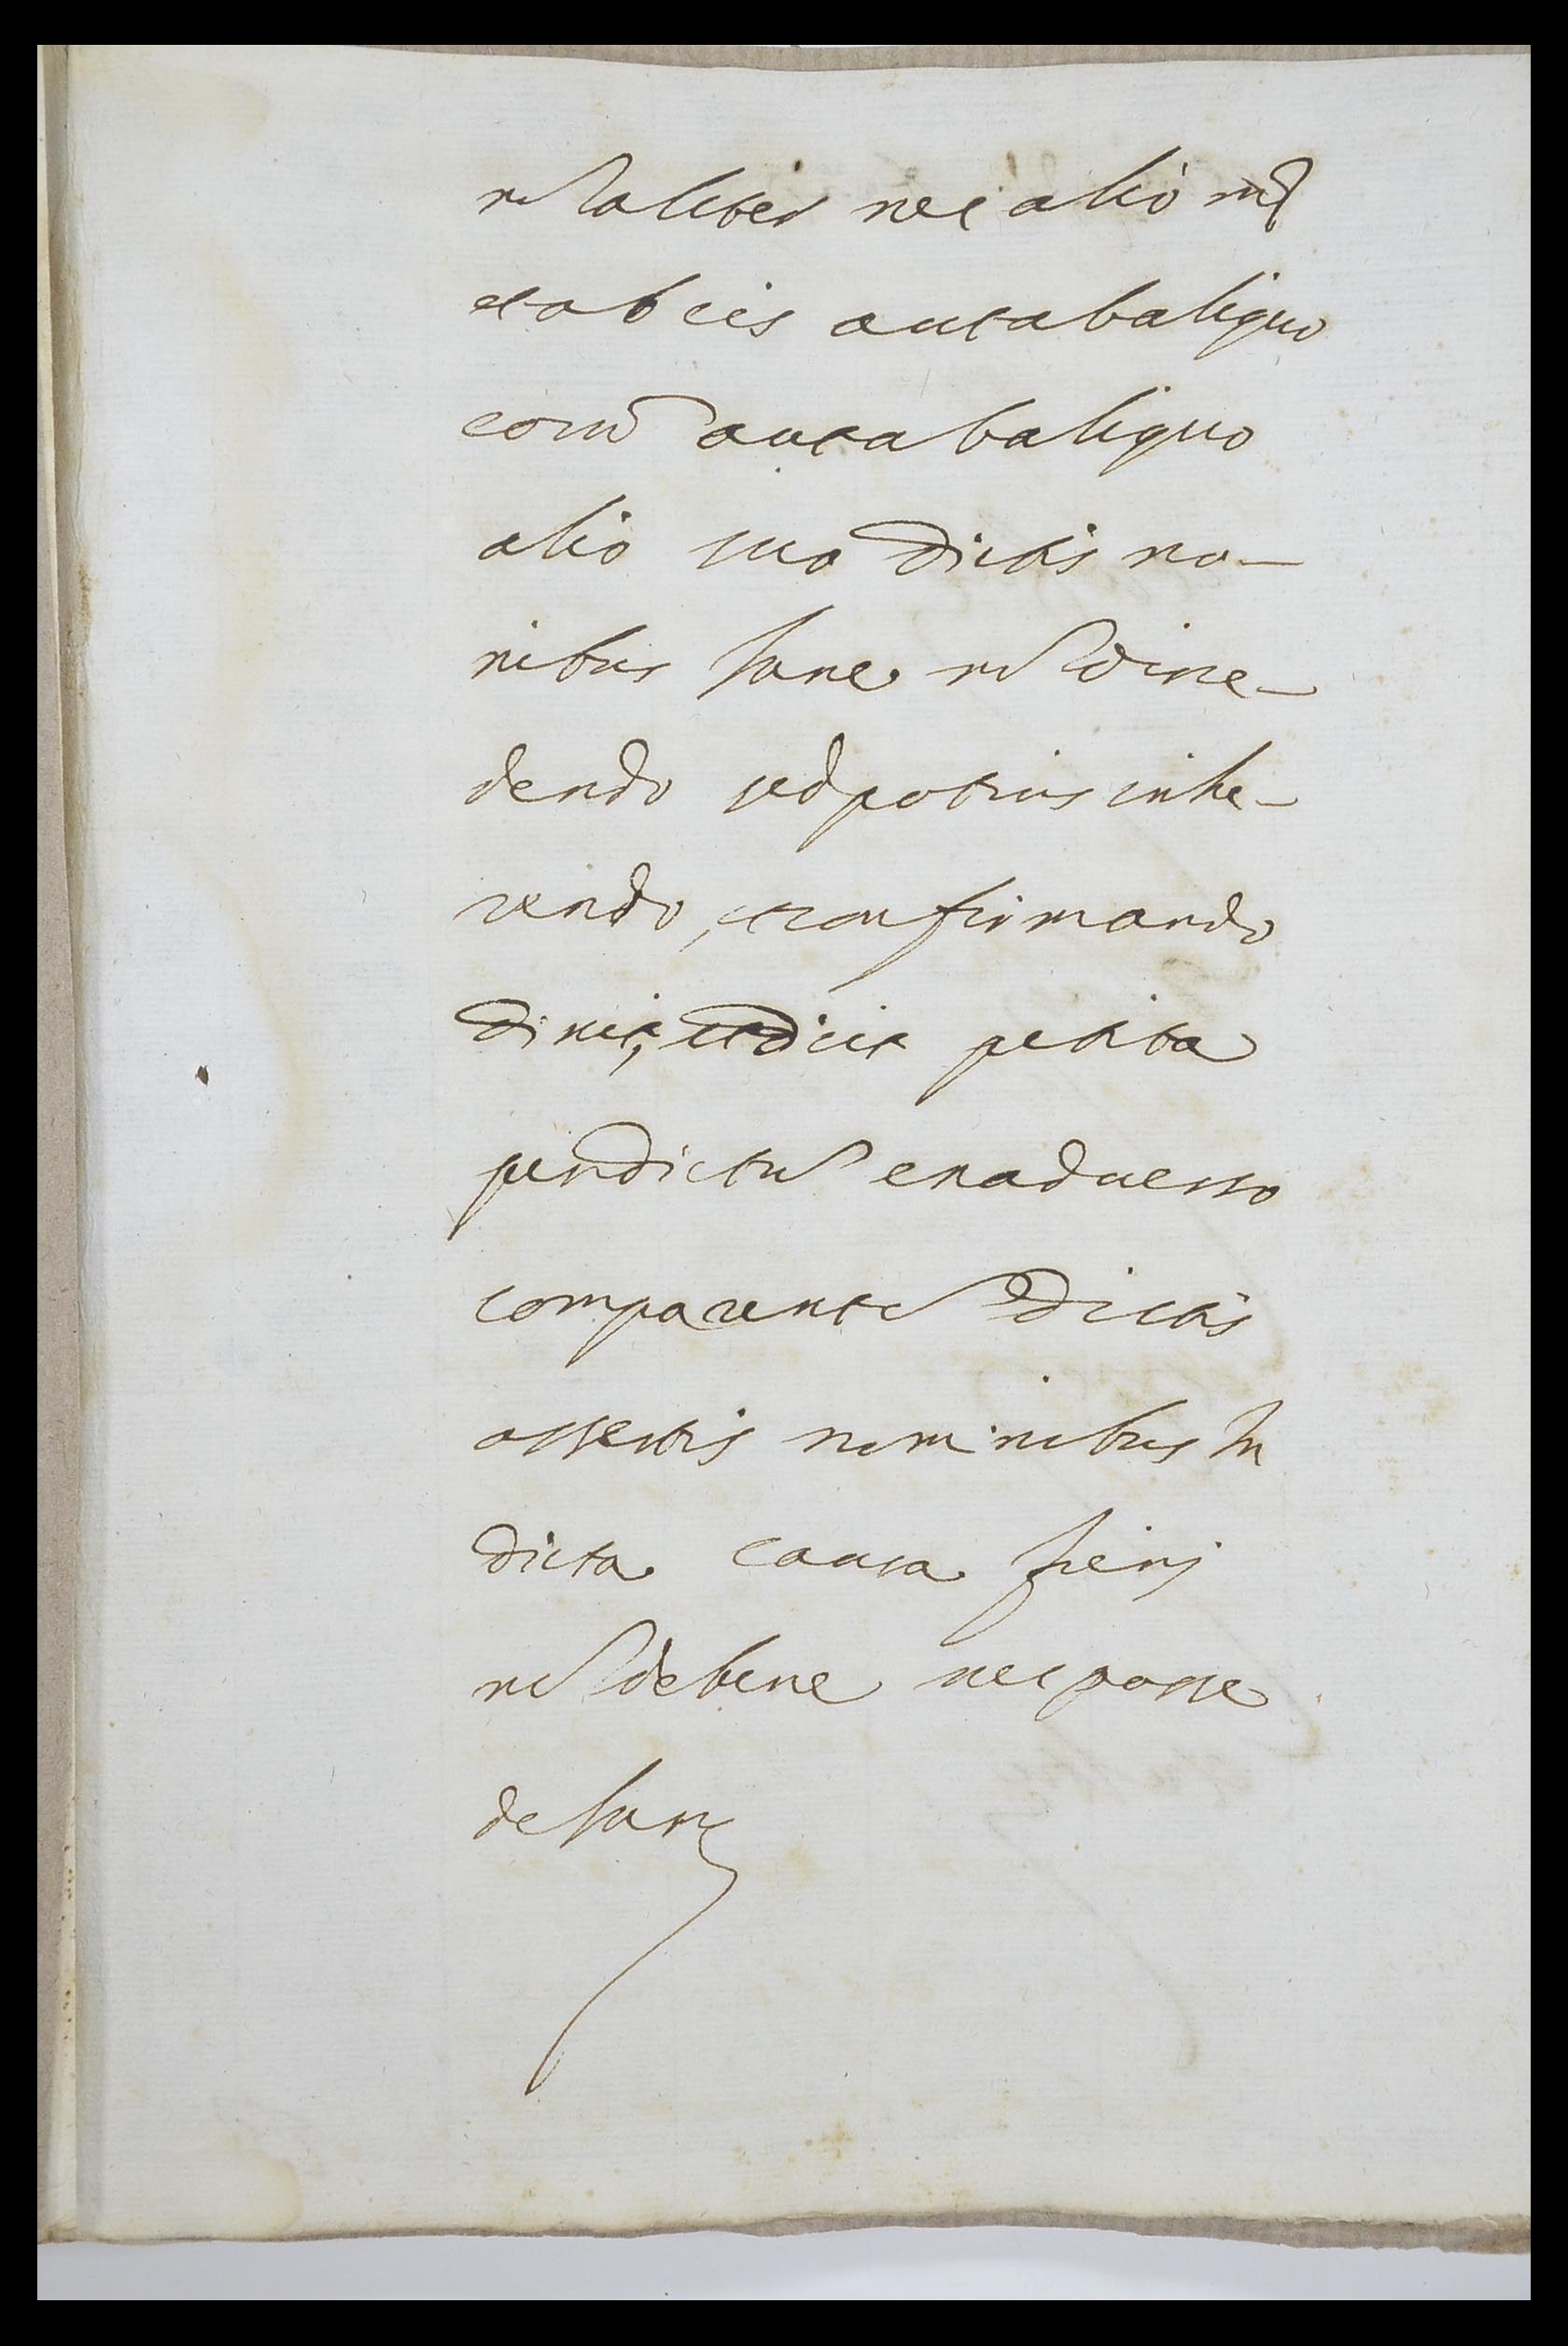 nõ aliter nec alio mõ
et ab eis aut ab aliquo
eorũ aut ab aliquo
alio quo dictis no-
nibus Iure nõ dire-
dendo sed potius inhe-
rendo, et confirmando
dixit, et dicit petita
per dictũ ex adverso
comparentẽ dictis
assertis nominibus In
dicta causa fieri
nõ debere nec posse
de Iure